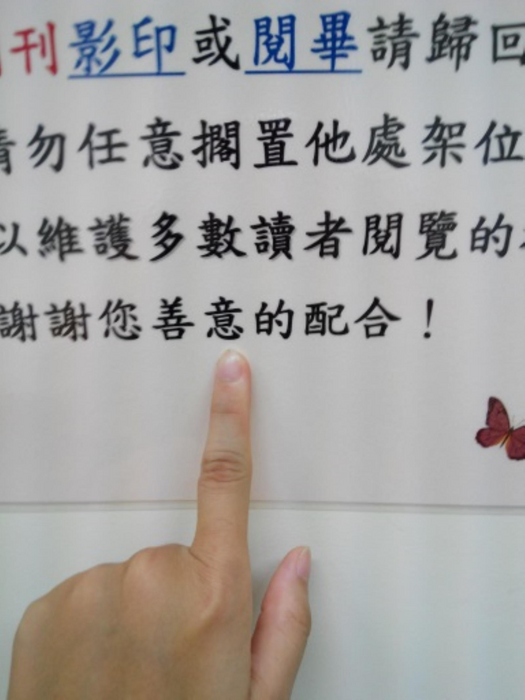 刊影印或閱畢請歸回
請勿任意擱置他處架位
以維護多數讀者閱覽的
謝謝您善意的配合！